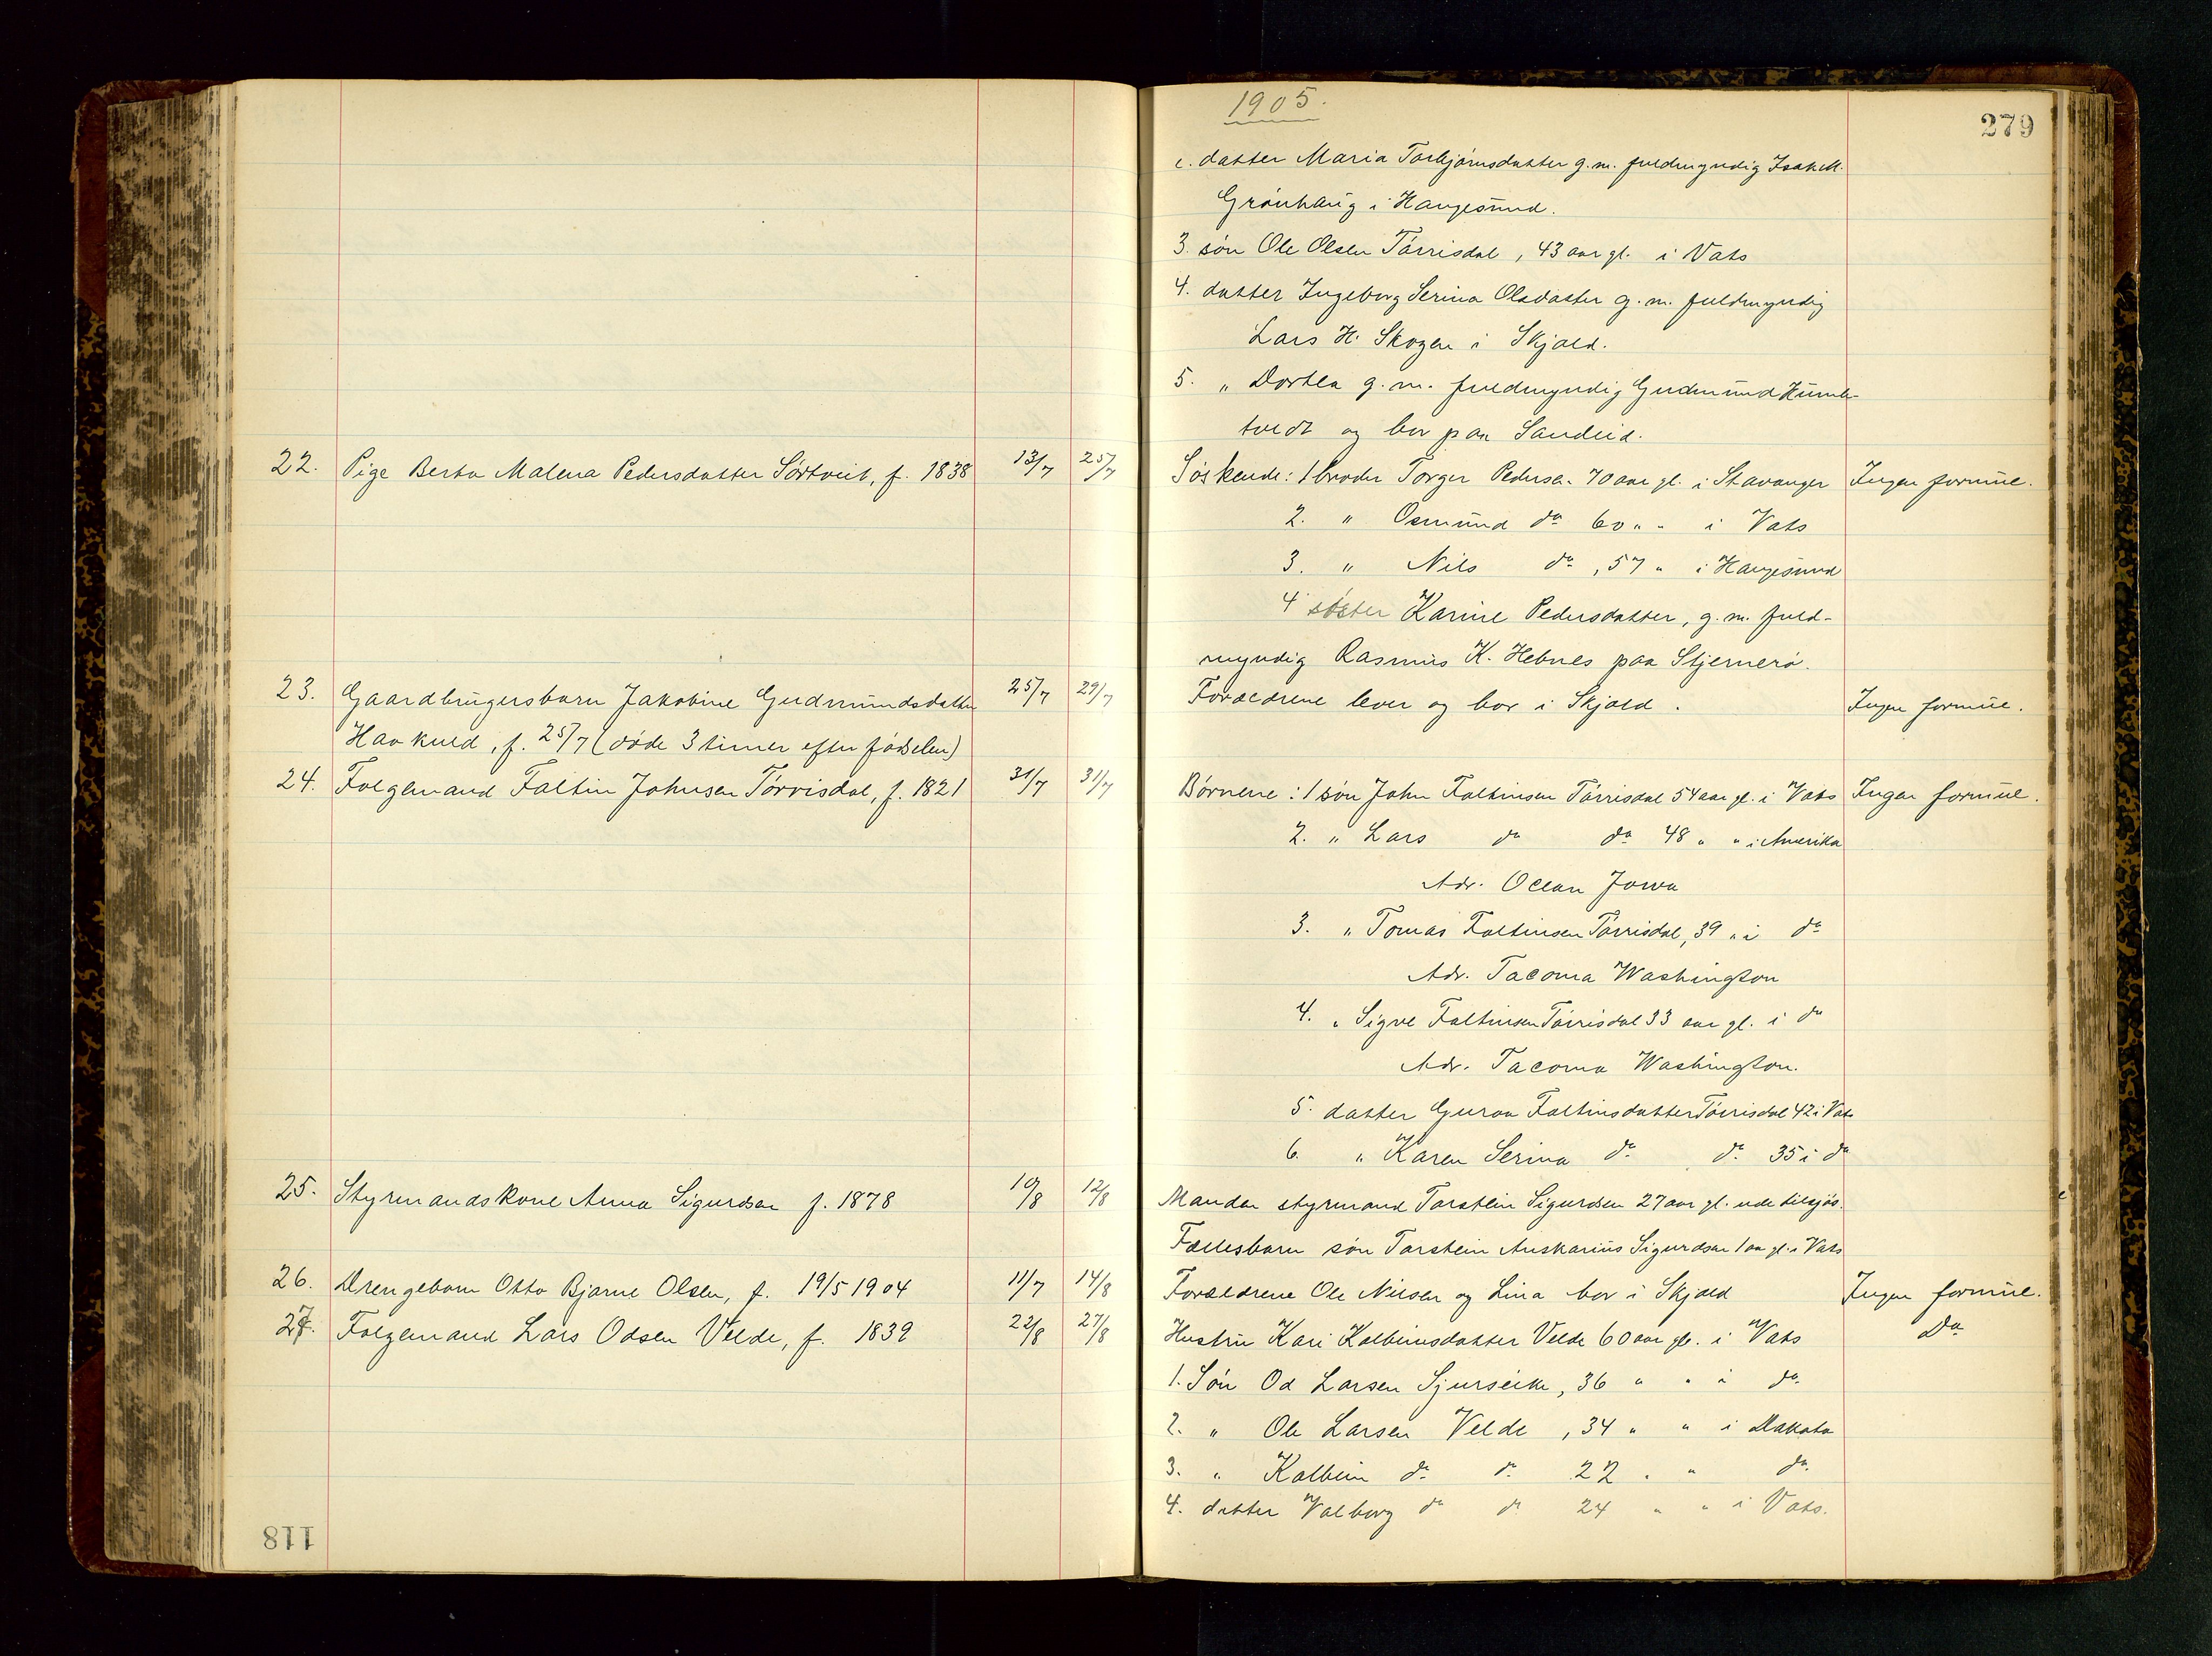 1905.
279
c. datter Maria Torbjørnsdatter g.m. fuldmyndig Isak M.
Grønhaug i Haugesund.
3. søn Ole Olsen Tørrisdal, 43 aar gl. i Vats
4. datter Ingeborg Serina Olsdatter g.m. fuldmyndig
Lars H. Skogen i Skjold.
5. " Dortea g.m. fuldmyndig Gudmund Humle-
tvedt og bor paa Sandeid.
22. Pige Berta Malena Pedersdatter Sørtveit, f. 1838 13/7 25/7 Søskende: 1 broder Torger Pedersen 70 aar gl. i Stavanger Ingen formue.
2. " Osmund do 60 " " i Vats
3. " Nils do, 57 " i Haugesund
4 søster Karine Pedersdatter, g.m. fuld-
myndig Rasmus K. Hebnes paa Stjernerø.
23. Gaardbrugersbarn Jakobine Gudmundsdatter 25/7 29/7 Forældrene lever og bor i Skjold. Ingen formue.
Havkuld, f. 25/7 (døde 3 timer efter fødselen)
24. Folgemand Faltin Johnsen Tørrisdal, f. 1821 31/7 31/7 Børnene: 1 søn John Faltinsen Tørrisdal 54 aar gl. i Vats Ingen formue.
2. " Lars do do 48 " " i Amerika
Adr. Ocean Jowa
3. " Tomas Faltinsen Tørrisdal, 39 " i do
Adr. Tacoma Washington
4. " Sigve Faltinsen Tørrisdal 33 aar gl. i do
Adr. Tacoma Washington.
5. datter Guroa Faltinsdatter Tørrisdal 42 i Vats
6. " Karen Serina do do 35 i do
25. Styrmandskone Anna Sigurdsen f. 1878 10/8 12/8 Manden styrmand Torstein Sigurdsen 27 aar gl. ude tilsjøs.
Fællesbarn søn Torstein Anskarius Sigurdsen 1 aar gl. i Vats
26. Drengebarn Otto Bjarne Olsen, f. 19/5 1904 11/7 14/8 Forældrene Ole Nilsen og Lina bor i Skjold Ingen formue.
27. Folgemand Lars Odsen Velde, f. 1839 22/8 27/8 Hustru Kari Kolbeinsdatter Velde 60 aar gl. i Vats Do
1. Søn Od Larsen Sjurseike, 36 " " i do.
2. " Ole Larsen Velde, 34 " " i Dakota
3. " Kolbein do do 22 " " do.
4. datter Valborg do do 24 " " i Vats.
118